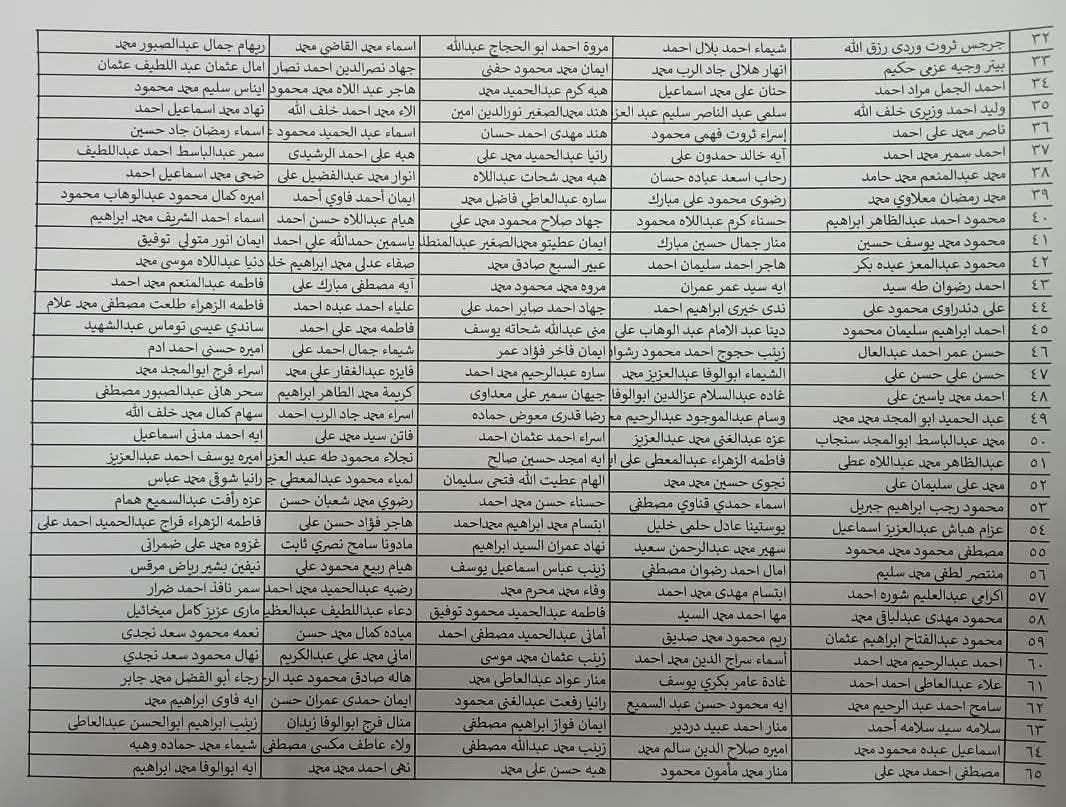 ٣٢ جرجس ثروت وردى رزق الله شيماء احمد بلال احمد مروة احمد ابو الحجاج عبدالله اسماء محمد القاضي محمد ريهام جمال عبدالصبور محمد
٣٣ بيتر وجيه عزمى حكيم انهار هلالى جاد الرب محمد ايمان محمد محمود حفنى جهاد نصرالدين احمد نصار امال عثمان عبد اللطيف عثمان
٣٤ احمد الجمل مراد احمد حنان على محمد اسماعيل هبه كرم عبدالحميد محمد هاجر عبد اللاه محمد محمود ايناس سليم محمد محمود
٣٥ وليد احمد وزيرى خلف الله سلمى عبد الناصر سليم عبد العز هند محمدالصغير نورالدين امين الاء محمد احمد خلف الله نهاد محمد اسماعيل احمد
٣٦ ناصر محمد على احمد إسراء ثروت فهمى محمود هند مهدى احمد حسان اسماء عبد الحميد محمود اسماء رمضان جاد حسين
٣٧ احمد سمير محمد احمد آيه خالد حمدون على رانيا عبدالحميد محمد على هبه على احمد الرشيدى سمر عبدالباسط احمد عبداللطيف
٣٨ محمد عبدالمنعم محمد حامد رحاب اسعد عباده حسان هبه محمد شحات عبداللاه انوار محمد عبدالفضيل على ضحى محمد اسماعيل احمد
٣٩ محمد رمضان معلاوي محمد رضوى محمود على مبارك ساره عبدالعاطي فاضل محمد ايمان أحمد فاوي أحمد اميره كمال محمود عبدالوهاب محمود
٤٠ محمود احمد عبدالظاهر ابراهيم حسناء كرم عبداللاه محمود جهاد صلاح محمود محمد علي هيام عبداللاه حسن احمد اسماء احمد الشريف محمد ابراهيم
٤١ محمود محمد يوسف حسين منار جمال حسين مبارك ايمان عطيتو محمدالصغير عبدالمنطلب ياسمين حمدالله علي احمد ايمان انور متولي توفيق
٤٢ محمود عبدالمعز عبده بكر هاجر احمد سليمان احمد عبير السبع صادق محمد صفاء عدلى محمد ابراهيم خلف دنيا عبداللاه موسى محمد
٤٣ احمد رضوان طه سيد ايه سيد عمر عمران مروه محمد محمود محمد آيه مصطفى مبارك على فاطمه عبدالمنعم محمد احمد
٤٤ على دندراوى محمود على ندى خيرى ابراهيم احمد جهاد احمد صابر احمد على علياء احمد عبده احمد فاطمه الزهراء طلعت مصطفى محمد علام
٤٥ احمد ابراهيم سليمان محمود دينا عبد الامام عبد الوهاب على منى عبدالله شحاته يوسف فاطمه محمد على احمد ساندي عيسى توماس عبدالشهيد
٤٦ حسن عمر احمد عبدالعال زينب حجوج احمد محمود رشوان ايمان فاخر فؤاد عمر شيماء جمال احمد على اميره حسنى احمد ادم
٤٧ حسن على حسن على الشيماء ابوالوفا عبدالعزيز محمد ساره عبدالرحيم محمد احمد فايزه عبدالغفار علي محمد اسراء فرج ابوالمجد محمد
٤٨ احمد محمد ياسين على غاده عبدالسلام عزالدين ابوالوفا جيهان سمير على معداوى كريمة محمد الطاهر ابراهيم سحر هانى عبدالصبور مصطفى
٤٩ عبد الحميد ابو المجد محمد محمد وسام عبدالموجود عبدالرحيم رضا قدرى معوض حماده اسراء محمد جاد الرب احمد سهام كمال محمد خلف الله
٥٠ محمد عبدالباسط ابوالمجد سنجاب عزه عبدالغنى محمد عبدالعزيز اسراء احمد عثمان احمد فاتن سيد محمد على ايه احمد مدنى اسماعيل
٥١ عبدالظاهر محمد عبداللاه عطى فاطمه الزهراء عبدالمعطى على ايه امجد حسين صالح نجلاء محمود طه عبد العزيز اميره يوسف احمد عبدالعزيز
٥٢ محمد على سليمان على نجوى حسين محمد محمد الهام عطيت الله فتحى سليمان لمياء محمود عبدالمعطي رانيا شوقى محمد عباس
٥٣ محمود رجب ابراهيم جبريل اسماء حمدي قناوي مصطفى حسناء حسن محمد احمد رضوي محمد شعبان حسن عزه رأفت عبدالسميع همام
٥٤ عزام هباش عبدالعزيز اسماعيل يوستينا عادل حلمى خليل ابتسام محمد ابراهيم محمداحمد هاجر فؤاد حسن على فاطمه الزهراء فراج عبدالحميد احمد على
٥٥ مصطفى محمود محمد محمود سهير محمد عبدالرحمن سعيد نهاد عمران السيد ابراهيم مادونا سامح نصري ثابت غزوه محمد على ضمرانى
٥٦ منتصر لطفى محمد سليم امال احمد رضوان مصطفي زينب عباس اسماعيل يوسف هيام ربيع محمود علي نيفين بشير رياض مرقس
٥٧ اكرامي عبدالعليم شوره احمد ابتسام مهدى محمد احمد وفاء محمد محرم محمد رضيه عبدالحميد محمد احمد سمر نافذ احمد ضرار
٥٨ محمود مهدى عبدلباقى محمد مها احمد محمد السيد فاطمه عبدالحميد محمود توفيق دعاء عبداللطيف عبدالعظيم مارى عزيز كامل ميخائيل
٥٩ محمود عبدالفتاح ابراهيم عثمان ريم محمود محمد صديق أمانى عبدالحميد مصطفى احمد مياده كمال محمد حسن نعمه محمود سعد نجدى
٦٠ احمد عبدالرحيم محمد احمد أسماء سراج الدين محمد احمد زينب عثمان محمد موسى اماني محمد علي عبدالكريم نهال محمود سعد نجدي
٦١ علاء عبدالعاطى احمد احمد غادة عامر بكري يوسف منار عواد عبدالعاطى محمد هاله صادق محمود عبد الر رجاء أبو الفضل محمد جابر
٦٢ سامح احمد عبد الرحيم محمد ايه محمود حسن عبد السميع رانيا رفعت عبدالغنى محمود ايمان حمدى عمران حسن ايه فاوى ابراهيم محمد
٦٣ سلامه سيد سلامه أحمد منار احمد عبيد دردير ايمان فواز ابراهيم مصطفى منال فرج ابوالوفا زيدان زينب ابراهيم ابوالحسن عبدالعاطى
٦٤ اسماعيل عبده محمود محمد اميره صلاح الدين سالم محمد زينب محمد عبدالله مصطفى ولاء عاطف مكسى مصطفى شيماء محمد حماده وهبه
٦٥ مصطفى احمد محمد على منار محمد مأمون محمود هبه حسن على محمد نهى احمد محمد محمد ايه ابوالوفا محمد ابراهيم